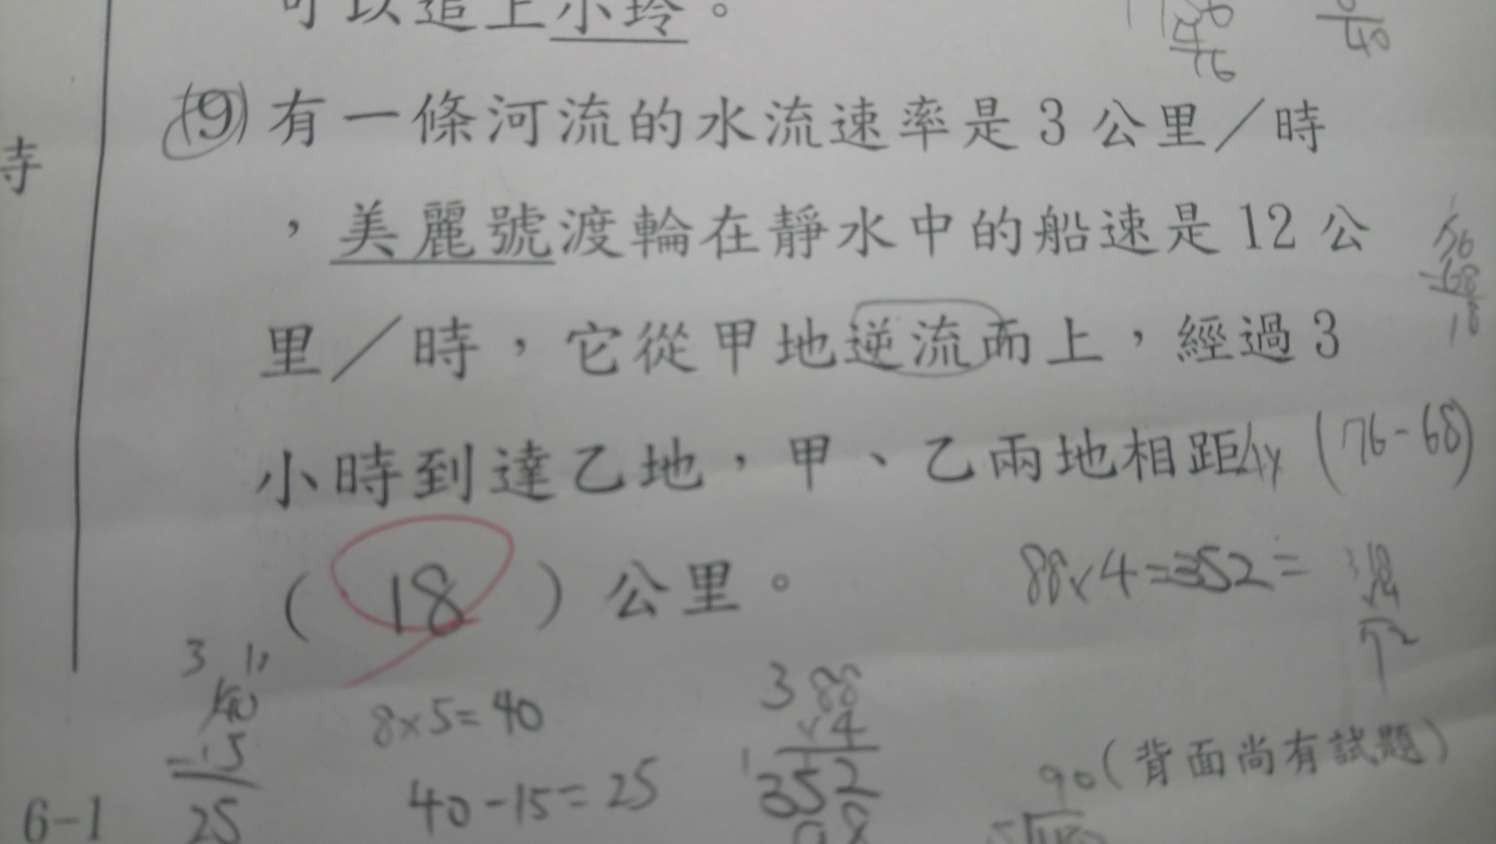 可以追上小玲。
40
46
(9)有一條河流的水流速率是3公里／時
，美麗號渡輪在靜水中的船速是12公
里／時，它從甲地逆流而上，經過3
小時到達乙地，甲、乙兩地相距
(76-68)
（ 18 ）公里。
88×4=352=
40
-15
25
8×5=40
40-15=25
3 88
×4
352
90
（背面尚有試題）
6-1
時